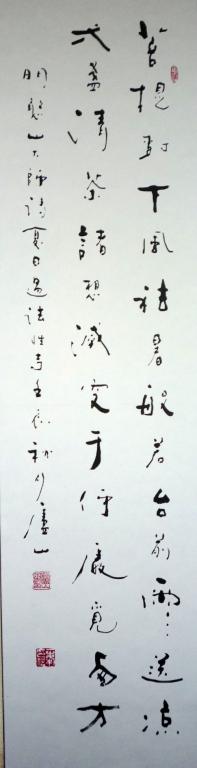 菩提樹下風祛暑般若台前雨送凉
弌盞清茶諸想滅更于何處覓方
明憨山大師詩夏日過法性寺壬辰秋月廬山